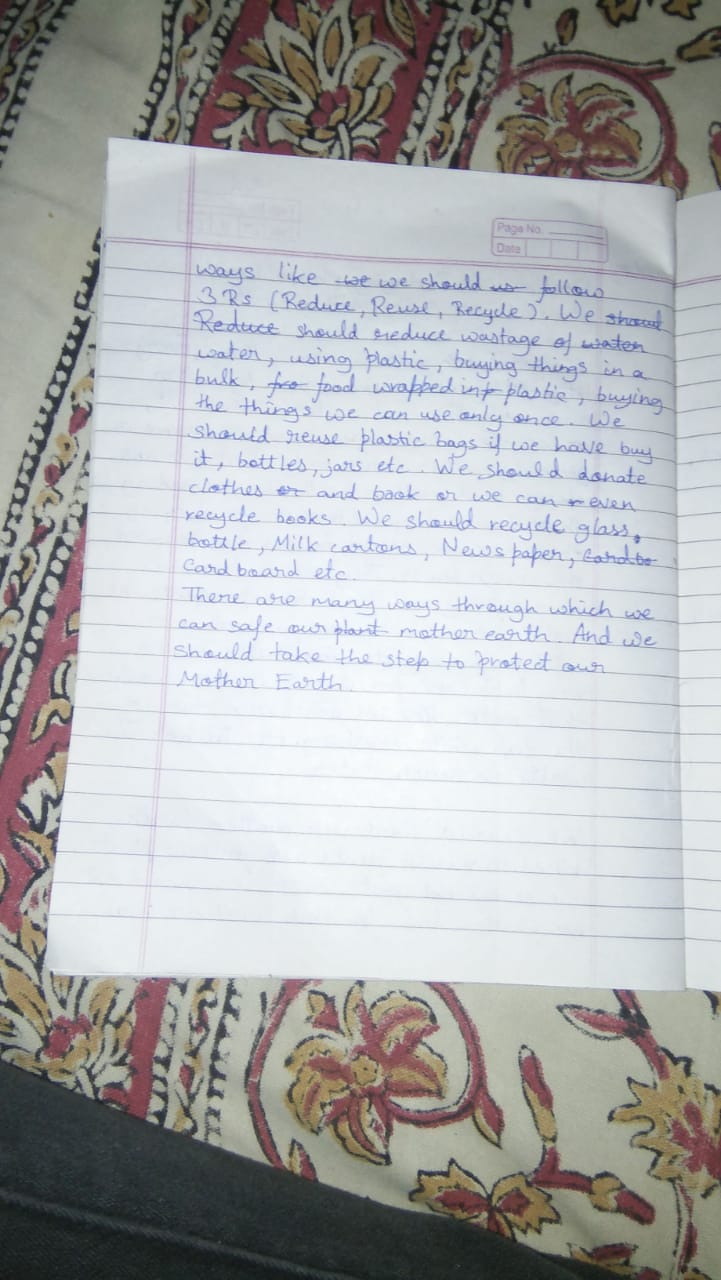 Page No.
Date
ways like we we should us follow
3 Rs (Reduce, Reuse, Recycle). We should
Reduce should reduce wastage of water
water, using plastic, buying things in a
bulk, fro food wrapped in plastic, buying
the things we can use only once. We
should reuse plastic bags if we have buy
it, bottles, jars etc. We should donate
clothes or and book or we can r even
recycle books. We should recycle glass,
bottle, Milk cartons, News paper, Cardbo
Cardboard etc.
There are many ways through which we
can safe our plant mother earth. And we
should take the step to protect our
Mother Earth.